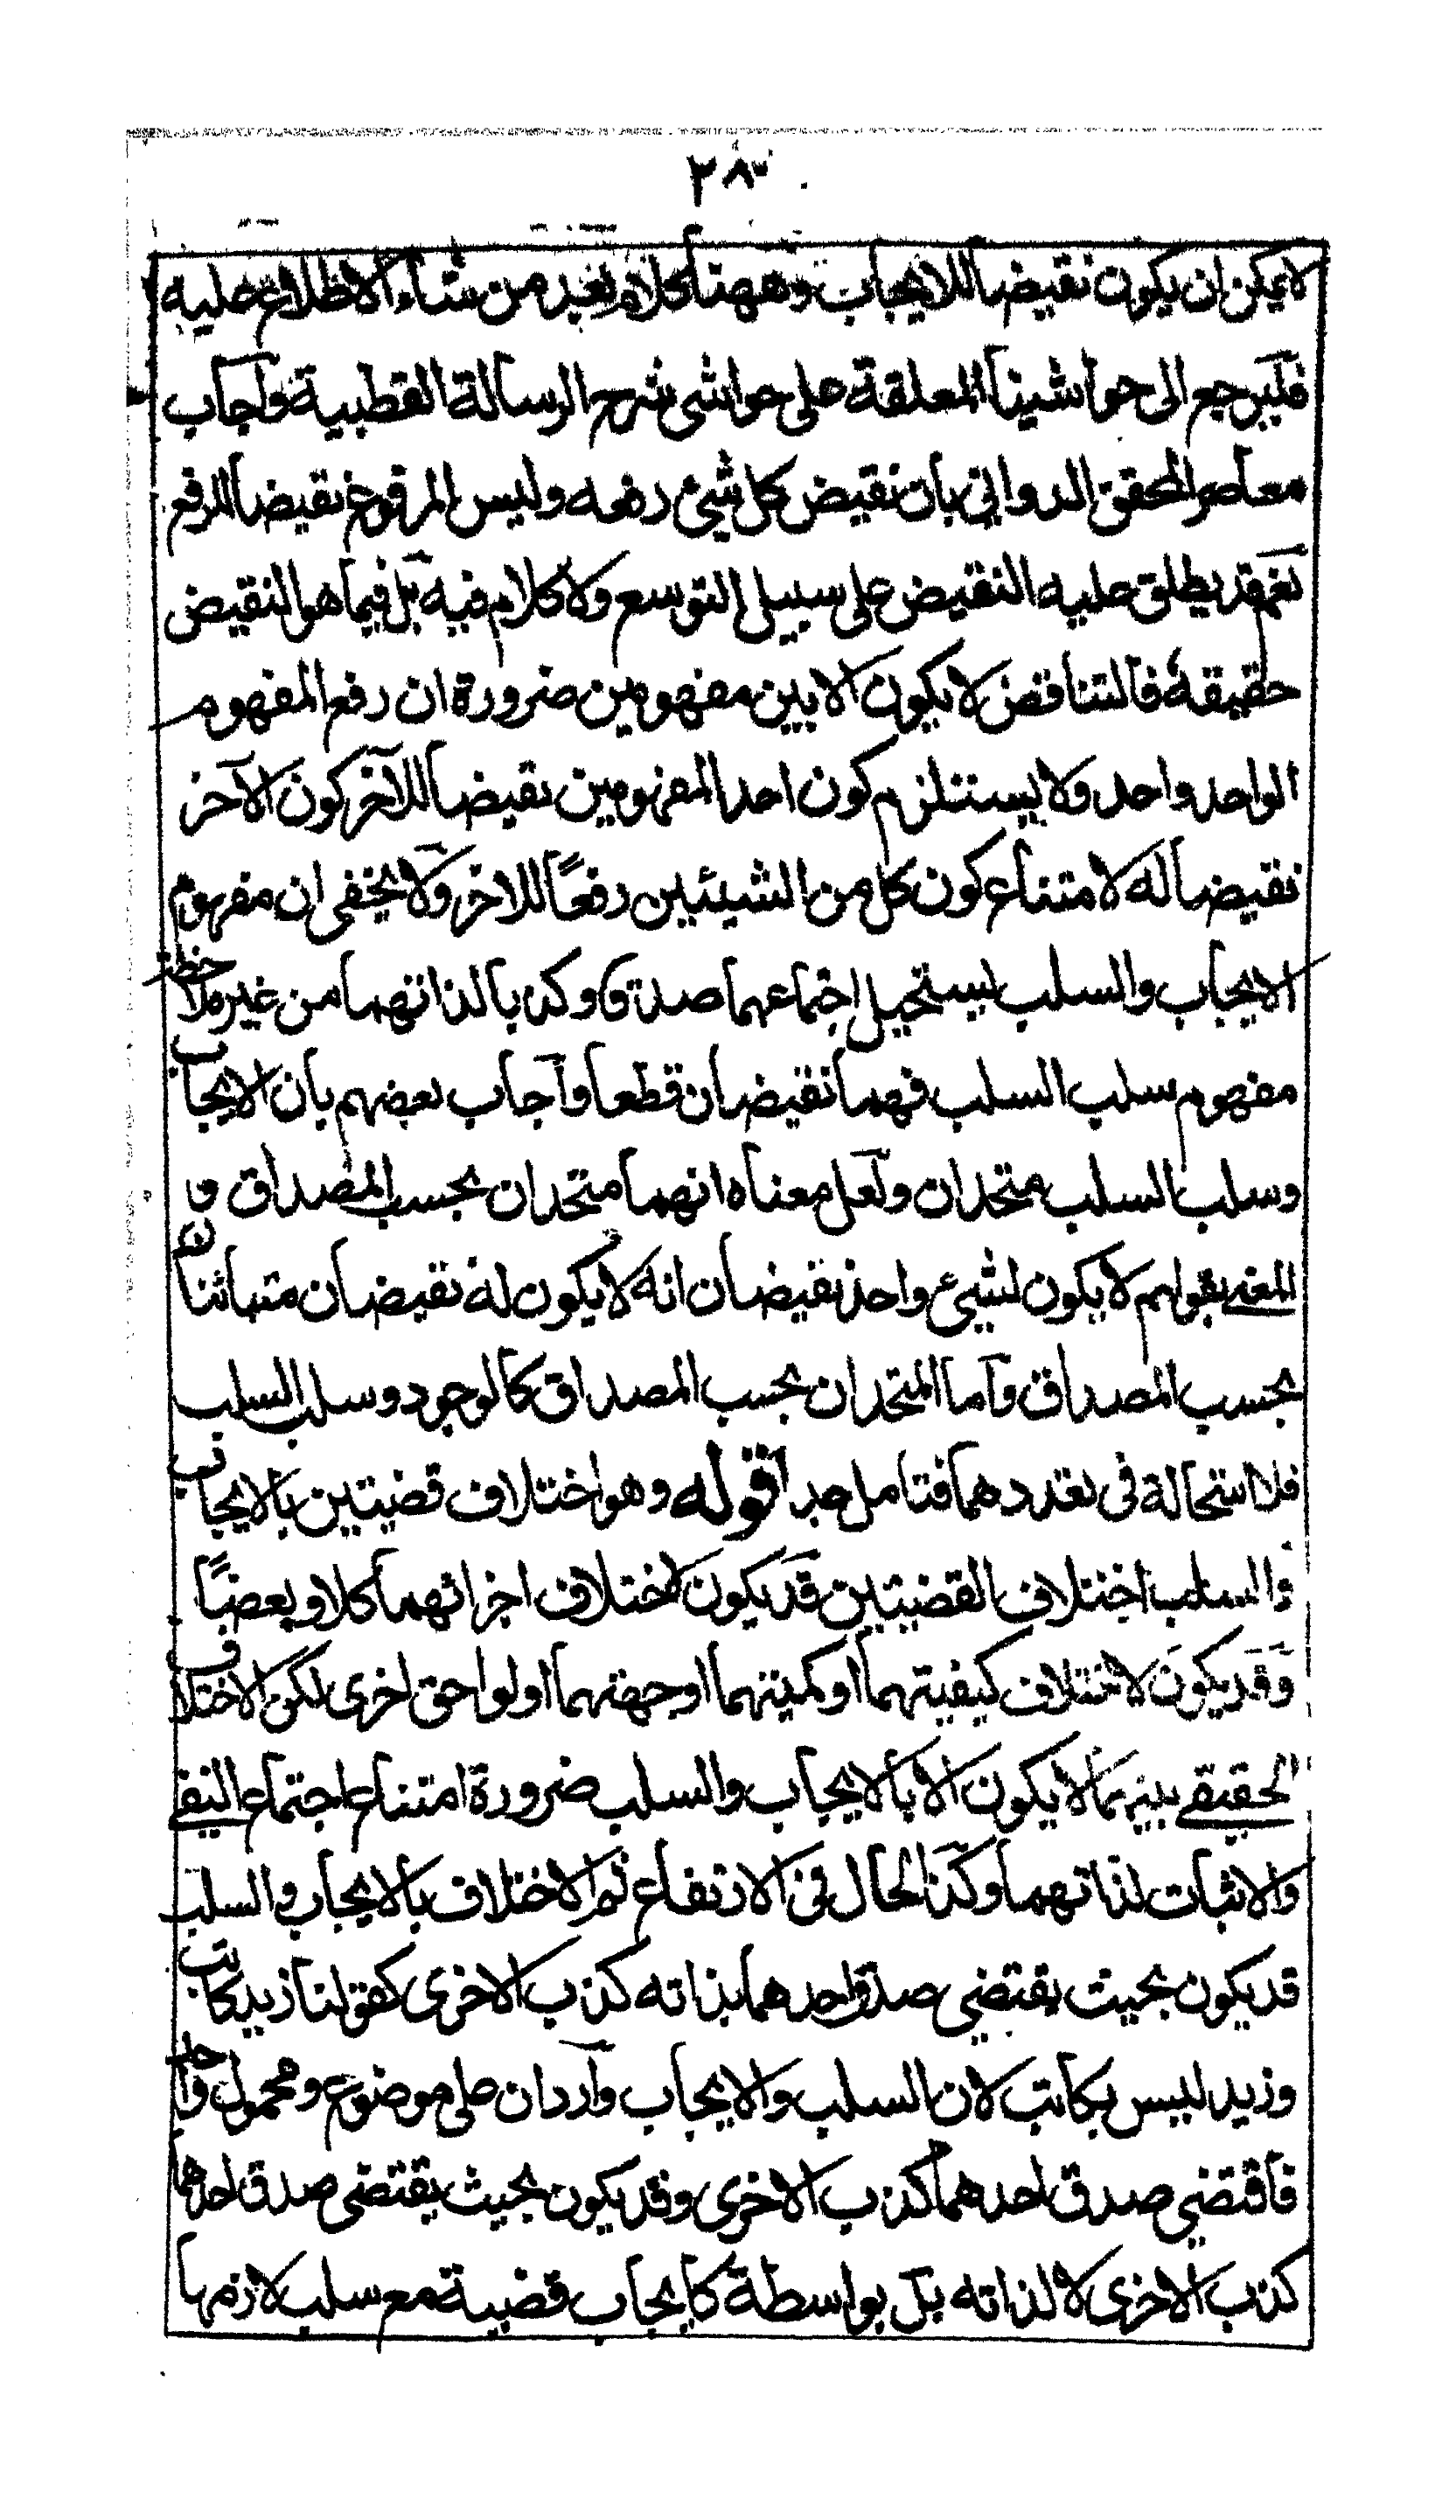 ٢٨٠
لا يمكن ان يكون نقيضا للايجاب وههنا كلام بعد من شاء الاطلاع عليه
فليرجع الى حواشينا المعلقة على حواشى شرح الرسالة القطبية وآجاب
معاصر المحقق الدوانى بان نقيض كل شيء رفعه وليس المرفوع نقيضا للرفع
نعم قد يطلق عليه النقيض على سبيل التوسع ولا كلام فيه بل فيما هو النقيض
حقيقة فالتناقض لا يكون الا بين مفهومين ضرورة ان رفع المفهوم
الواحد واحد ولا يستلزم كون احد المفهومين نقيضا للآخر كون الآخر
نقيضا له لامتناع كون كل من الشيئين رفعًا للاخر ولا يخفى ان مفهوم
الايجاب والسلب يستحيل اجتماعهما صدقا وكذبا لذاتهما من غير ملاحظة
مفهوم سلب السلب فهما نقيضان قطعا وآجاب بعضهم بان الايجاب
وسلب السلب متحدان ولعل معناه انهما متحدان بحسب المصداق و
المعنى بقولهم لا يكون لشيء واحد نقيضان انه لا يكون له نقيضان متبائنان
بحسب المصداق وآما المتحدان بحسب المصداق كالوجود وسلب السلب
فلا استحالة فى تعددهما فتامل جدا قوله وهو اختلاف قضيتين بالايجاب
والسلب اختلاف القضيتين قد يكون لاختلاف اجزائهما كلا وبعضًا
وقد يكون لاختلاف كيفيتهما او كميتهما او جهتهما او لواحق اخرى لكن الاختلاف
الحقيقى بينهما لا يكون الا بالايجاب والسلب ضرورة امتناع اجتماع النفى
والاثبات لذاتهما وكذا الحال فى الارتفاع ثم الاختلاف بالايجاب والسلب
قد يكون بحيث يقتضى صدق احدهما بذاته كذب الاخرى كقولنا زيد كاتب
وزيد ليس بكاتب لان السلب والايجاب واردان على موضوع ومحمول واحد
فاقتضى صدق احدهما كذب الاخرى وقد يكون بحيث يقتضى صدق احدهما
كذب الاخرى لا لذاته بل بواسطة كايجاب قضية مع سلب لازمها